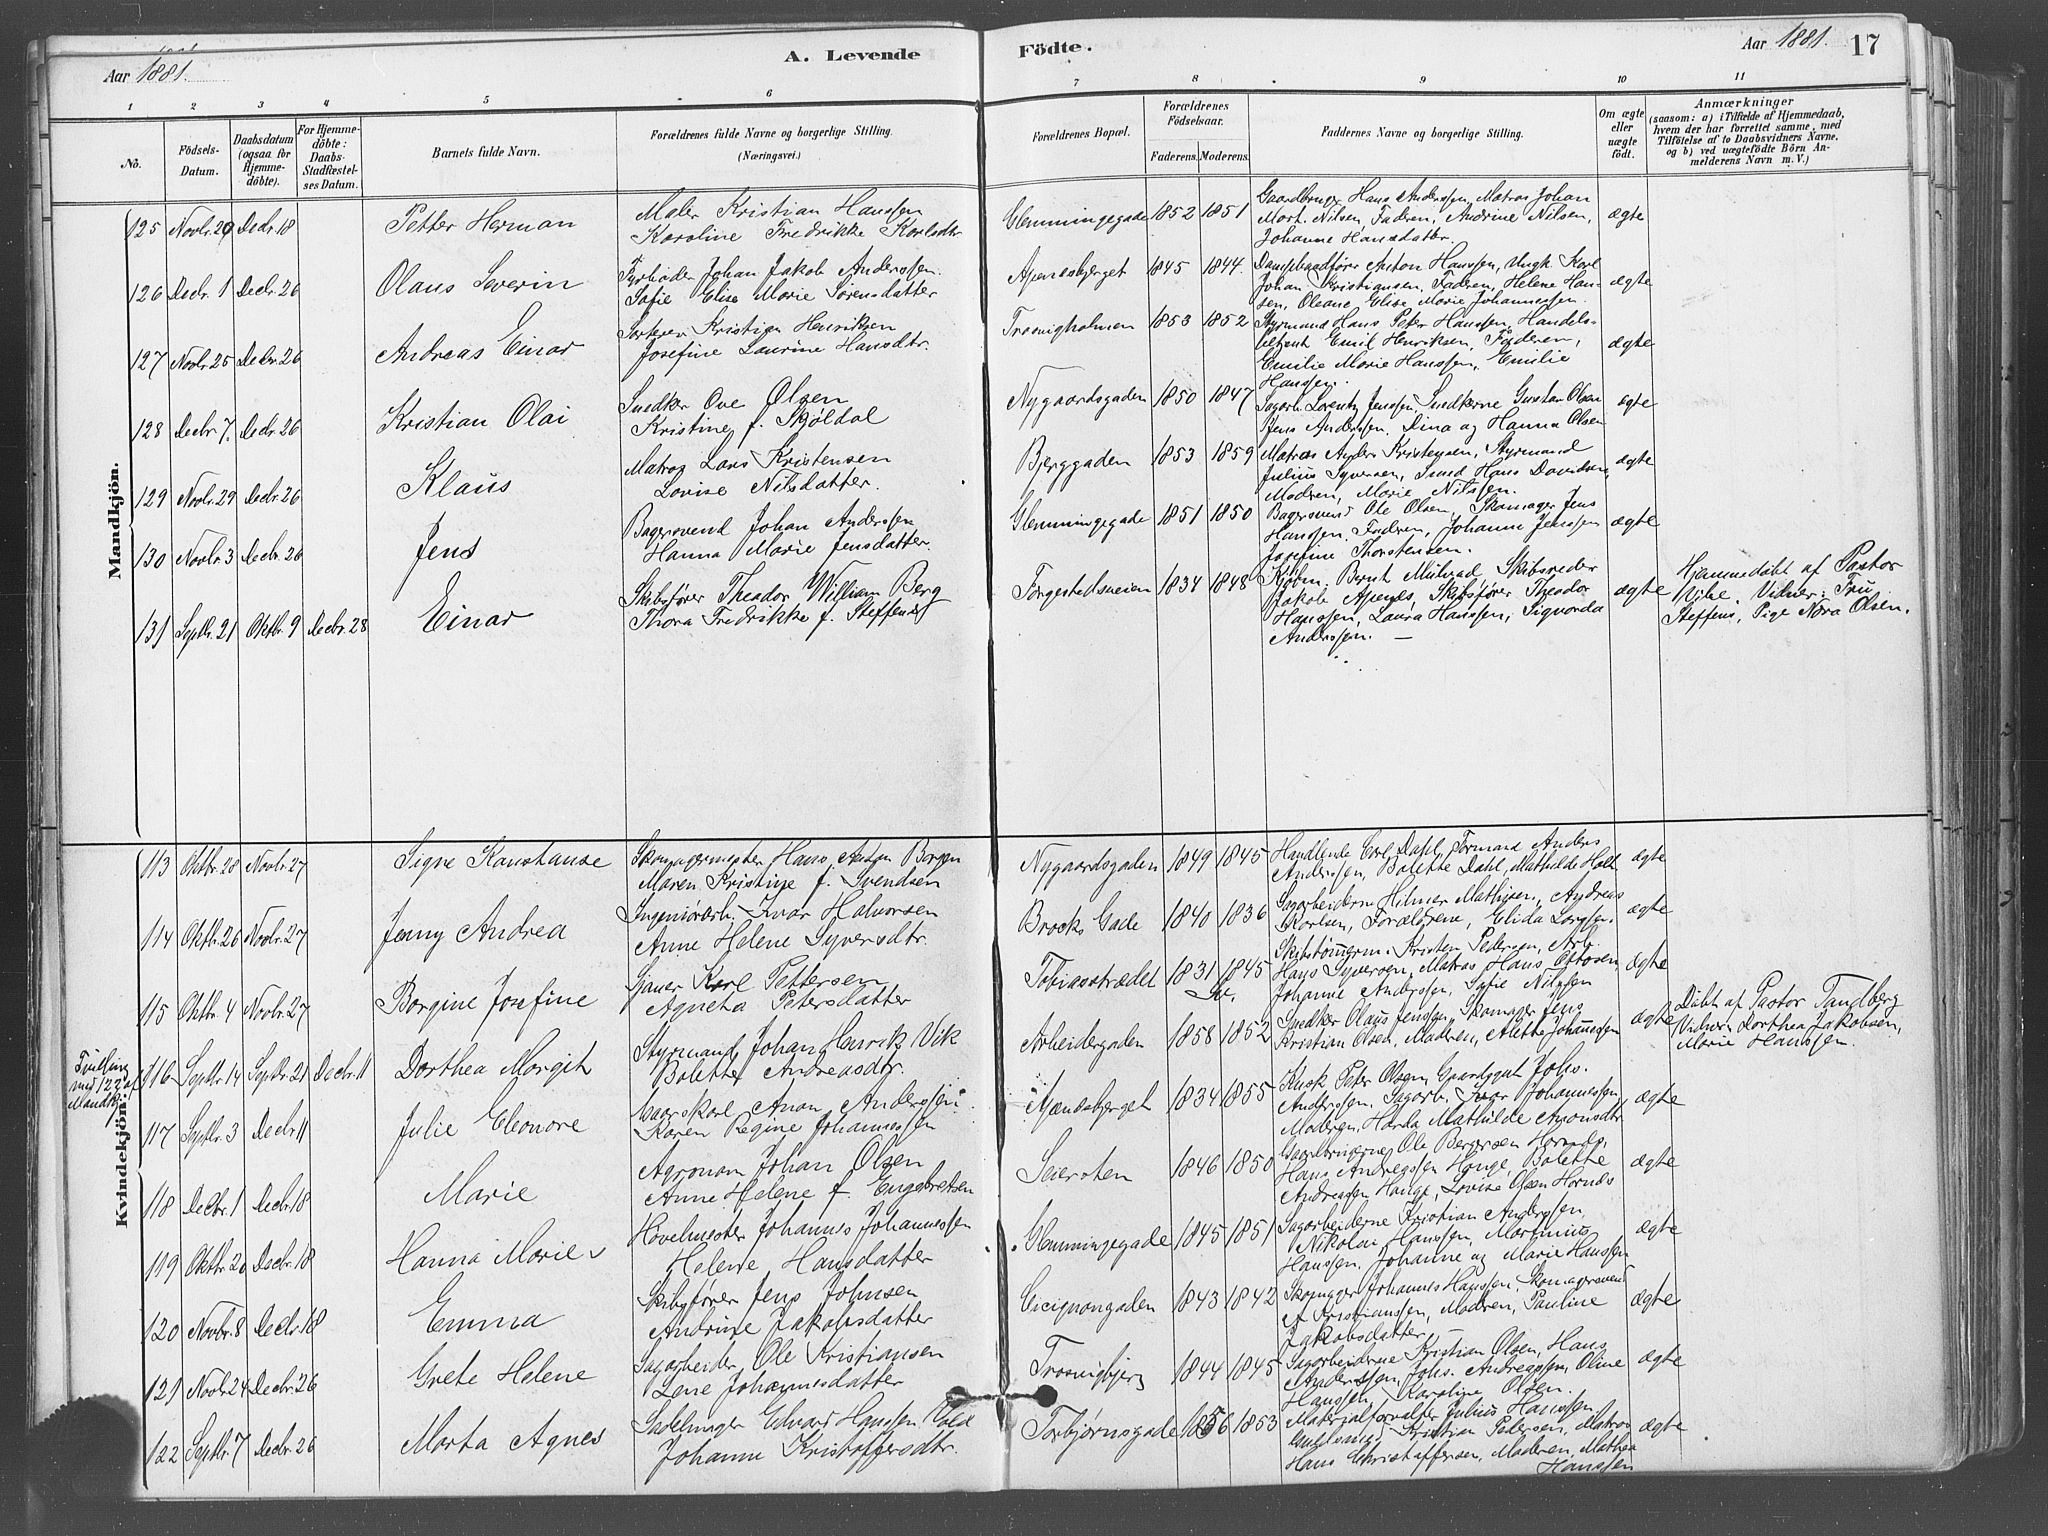 Aar 1881.
A. Levende
Födte.
Aar 1881.
17
1 2 3 4 5 6 7 8 9 10 11
No.
Födsels-Datum.
Daabsdatum (ogsaa for Hjemme-döbte).
For Hjemme-döbte: Daabs-Stadfæstel-ses Datum.
Barnets fulde Navn.
Forældrenes fulde Navne og borgerlige Stilling. (Næringsvei.)
Forældrenes Bopæl.
Forældrenes Födselsaar.
Faderens. Moderens.
Faddernes Navne og borgerlige Stilling.
Om ægte eller uægte födt.
Anmærkninger
(saasom: a) i Tilfælde af Hjemmedaab,
hvem der har forrettet samme, med
Tilföielse af to Daabsvidners Navne.
og b) ved uægtefödte Börn An-
melderens Navn m.V.)
Mandkjön.
125 Novbr. 29 Decbr. 18 Petter Herman
Maler Kristian Hanssen
Karoline Fredrikke Karlsdtr
Glemmingegade 1852 1851
Gaardbruger Hans Anderssen, Matros Johan
Mort. Nilsen, Fadren, Andrine Nilsen,
Johanne Hansdatter.
ægte
126 Decbr. 1 Decbr. 26 Olaus Severin
Fyrbøder Johan Jakob Anderssen.
Sofie Elise Marie Sørensdatter
Apenesbjerget 1845 1844.
Dampbaadfører Anton Hanssen, Ungk. Karl
Johan Kristiansen, Fadren, Helene Han-
sen, Oleane Elise Marie Johannessen.
ægte
127 Novbr. 25 Decbr. 26 Andreas Einar
Sorterer Kristian Henriksen
Josefine Laurine Hansdtr.
Trosvigholmen 1853 1852
Styrmand Hans Peter Hanssen, Handels-
betjent Emil Henriksen, Fadren,
Emilie Marie Hanssen, Emilie
Hanssen.
ægte
128 Decbr. 7. Decbr. 26 Kristian Olai
Snedker Ove Olsen
Kristine f. Skjöldal
Nygaardsgaden 1850 1847
Sagarb. Lorentz Jenssen, Snedkerne Gustav Olsen
Jens Anderssen. Dina og Hanna Olsen
ægte
129 Novbr. 29 Decbr. 26 Klaus
Matros Lars Kristensen
Lovise Nilsdatter.
Bjerggaden 1853 1859
Matros Anders Kristensen, Styrmand
Julius Syversen, Smed Hans Davidsen,
Madren, Marie Nilssen.
ægte
130 Novbr. 3 Decbr. 26 Jens
Bagersvend Johan Anderssen
Hanna Marie Jensdatter.
Glemmingegade 1851 1850
Bagersvend Ole Olsen, Skomager Jens
Hanssen, Fadren, Johanne Jenssen
Josefine Thorstensen.
ægte
131 Septbr. 21 Oktbr. 9 Decbr. 28 Einar
Skibsfører Theodor William Berg
Thora Fredrikke f. Steffens
Torgestedsveien 1834 1848
Kjøbm. Bernt Mulvad, Skibsreder
Jakob Apenes, Skibsfører Theodor
Hanssen, Laura Hanssen, Signorda
Anderssen. —
ægte
Hjemmedøbt af Pastor
Vibe. Vidner: Fru
Steffens, Pige Nora Olsen.
Kvindekjön.
113 Oktbr. 28 Novbr. 27 Signe Konstanse
Skomagermester Hans Anton Borgen
Maren Kristine f. Svendsen
Nygaardsgaden 1849 1845
Handlende Carl Dahl, Formand Anders
Anderssen, Bolette Dahl, Mathilde Holt
ægte
114 Oktbr. 26 Novbr. 27 Jenny Andrea
Ingeniørarb. Ivar Halvorsen
Anne Helene Syversdtr.
Brocks Gade 1840 1836
Sagarbeiderne Hilmer Mathisen, Andreas
Karlsen, Forældrene, Elida Larssen.
ægte
115 Oktbr. 4 Novbr. 27 Borgine Josefine
Sjauer Karl Pettersen
Agneta Petersdatter
Tobiasstrædet 1831 1845
Sv.
Skibstømrerm. Kristen Pedersen, Arb.
Hans Syversen, Matros Hans Ottosen,
Johanne Anderssen, Sofie Nilssen
ægte
Tvilling
med 122 af
Mandkj.
116 Septbr. 14 Septbr. 21 Decbr. 11 Dorthea Margit
Styrmand Johan Henrik Vik
Bolette Andreasdtr.
Arbeidergaden 1858 1852
Snedker Olaus Jenssen, Skomager Jens
Kristian Olsen, Madren, Alette Johannessen
ægte
Døbt af Pastor Tandberg
Vidner: Dorthea Jakobsen,
Marie Hanssen.
117 Septbr. 3 Decbr. 11 Julie Eleonore
Gaardskarl Anon Anderssen.
Karen Regine Johannessen
Apenesbjerget 1834 1855
Kusk Peter Olsen, Gaardsgut Johs.
Anderssen, Sagarb. Ivar Johannessen,
Moderen, Hårda Mathilde Anonsdtr.
ægte
118 Decbr. 1 Decbr. 18 Marie
Agronom Johan Olsen
Anne Helene f. Engebretsen
Seiersten 1846 1850
Gaardbrugerne Ole Bergersen Hornes,
Hans Andreassen Hauge, Bolette
Andreassen Hauge, Lovise Olsen Hornes
ægte
119 Oktbr. 20 Decbr. 18 Hanna Marie
Høvelmester Johannes Johannessen
Helene Hansdatter
Glemmingegade 1845 1851
Sagarbeiderne Kristian Anderssen,
Nikolai Hanssen, Martinius
Hanssen, Johanne og Marie Hanssen
ægte
120 Novbr. 8 Decbr. 18 Emma
Skibsfører Jens Johnsen
Andrine Jakobsdatter
Cicignongaden 1843 1842
Skomager Johannes Hanssen, Skomagersvend
A. Kristianssen, Madren, Pauline
Jakobsdatter
ægte
121 Novbr. 24 Decbr. 26 Grete Helene
Sagarbeider Ole Kristiansen
Lene Johannesdatter
Trosvigbjerg 1844 1845
Sagarbeiderne Kristian Olsen, Hans
Anderssen, Johs. Andreassen, Oline
Hanssen, Karoline Olsen.
ægte
122 Septbr. 7 Decbr. 26 Marta Agnes
Sadelmager Edvard Hanssen Vold
Johanne Kristoffersdtr.
Torbjørnsgade 1856 1853
Materialforvalter Julius Hanssen,
Kristian Pedersen, Matros
Hans Christoffersen, Madren, Mathea
Hanssen
ægte